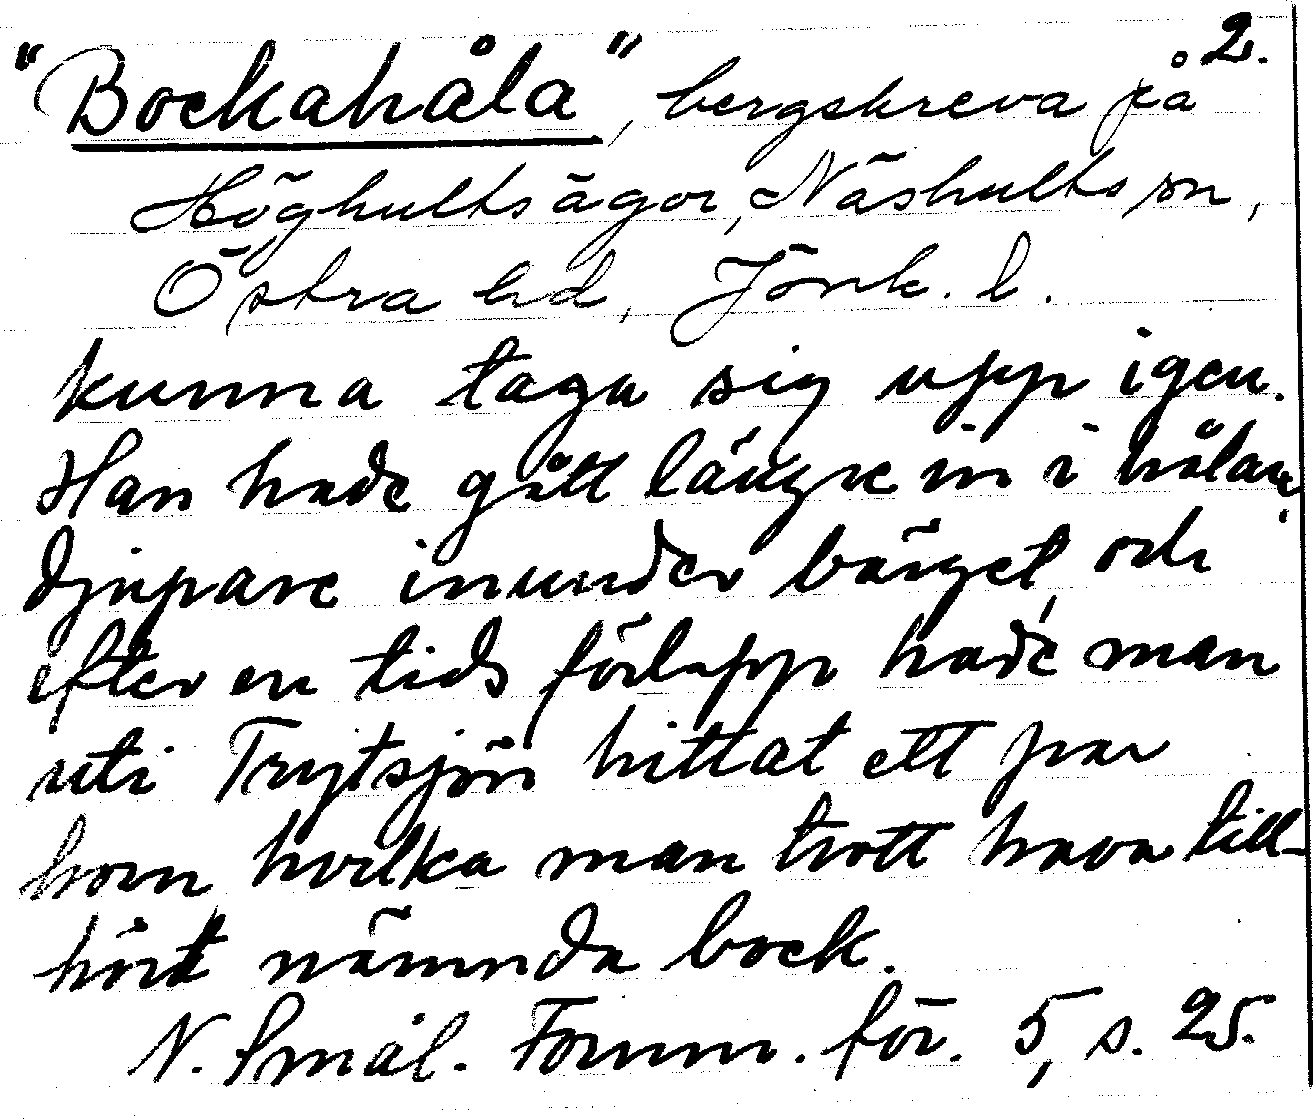 2.
"Bockahåla", bergskreva på
Höghults ägor, Näshults sn,
Östra hd, Jönk. l.
kunna taga sig upp igen.
Han hade gått längre in i hålan,
djupare inunder bärget, och
efter en tids förlopp hade man
uti Trytsjön hittat ett par
horn hvilka man trott hava till-
hört nämnda bock.
N. Smål. Fornm. för. 5, s. 25.